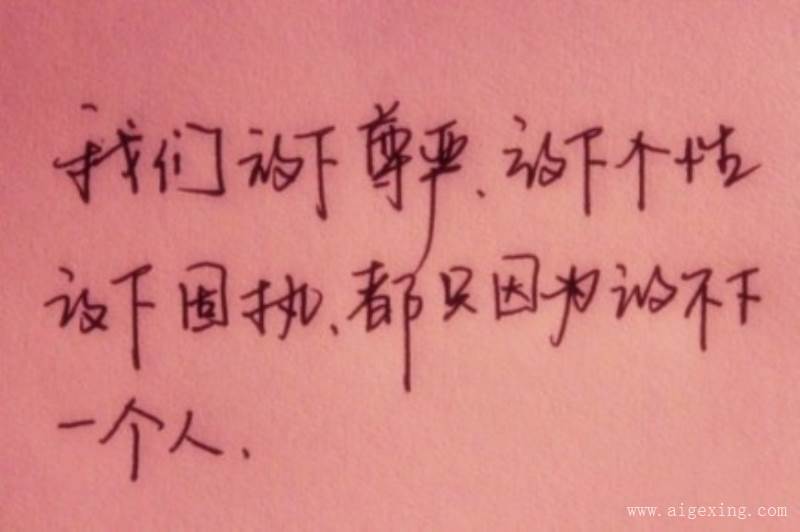 我们放下尊严、放下个性
放下固执、都只因为放不下
一个人.
www.aigexing.com